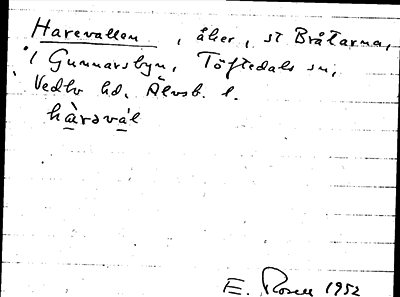 Harevallen, åker, st Bråtarna,
i Gunnarsbyn, Töftedals sn,
Vedbo hd, Älvsb. l.
hàrəvál
E. Rosell 1952